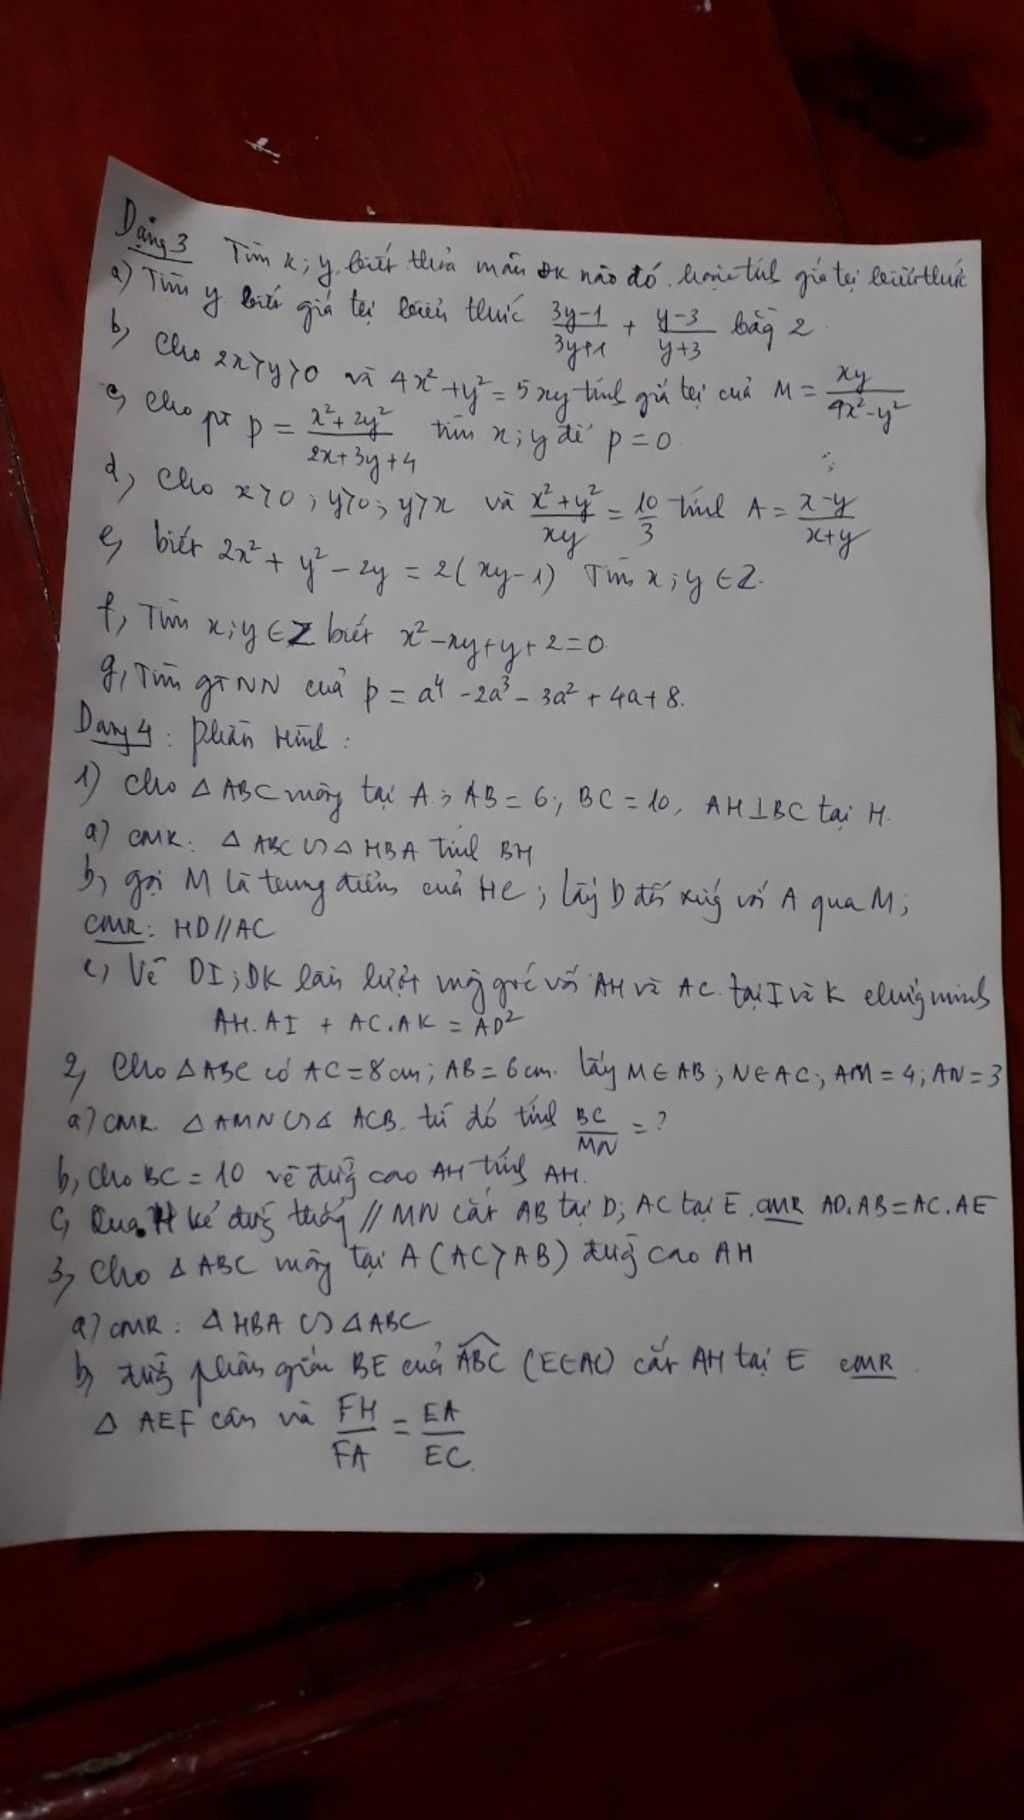 Dạng 3 Tìm x; y biết thỏa mãn ĐK nào đó hoặc tính giá trị biểu thức
a) Tìm y biết giá trị biểu thức \frac{3y-1}{3y+1} + \frac{y-3}{y+3} bằng 2.
b, Cho 2x>y>0 và 4x²+y²=5xy tính giá trị của M = \frac{xy}{4x²-y²}
c, Cho pt p = \frac{x²+2y²}{2x+3y+4} tìm x; y để p = 0
d, Cho x>0; y>0; y>x và \frac{x²+y²}{xy} = \frac{10}{3} tính A = \frac{x-y}{x+y}
e, biết 2x² + y² - 2y = 2(xy-1) Tìm x; y ∈ Z.
f, Tìm x; y ∈ Z biết x²-xy+y+2=0
g, Tìm GTNN của p = a⁴ -2a³ - 3a² + 4a + 8.
Dạng 4: phần Hình:
1) Cho △ABC vuông tại A; AB = 6; BC = 10, AH⊥BC tại H.
a) CMR: △ABC ∽ △HBA tính BH
b, gọi M là trung điểm của HC; lấy D đối xứng với A qua M;
CMR: HD//AC
c, Vẽ DI; DK lần lượt vuông góc với AH và AC tại I và K chứng minh
AH.AI + AC.AK = AD²
2, Cho △ABC có AC=8cm; AB=6cm. lấy M∈AB; N∈AC; AM=4; AN=3
a) CMR. △AMN ∽ △ACB. từ đó tính \frac{BC}{MN} = ?
b, Cho BC = 10 vẽ đường cao AH tính AH.
c, Qua H kẻ đường thẳng // MN cắt AB tại D; AC tại E. CMR AD.AB = AC.AE
3, Cho △ABC vuông tại A (AC>AB) đường cao AH
a) CMR: △HBA ∽ △ABC
b, đường phân giác BE của \widehat{ABC} (E∈AC) cắt AH tại E CMR.
△AEF cân và \frac{FH}{FA} = \frac{EA}{EC}.